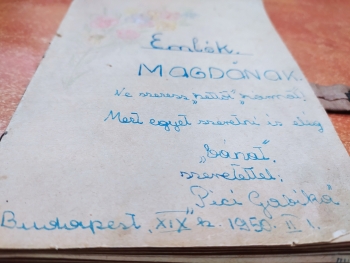 Emlék.
MAGDÁNAK.
Ne szeress „
Mert egyet szeretni is elég
„bánat".
szeretettel:
Pici Gabika"
Budapest, „XIX" k. 1950. II 1.